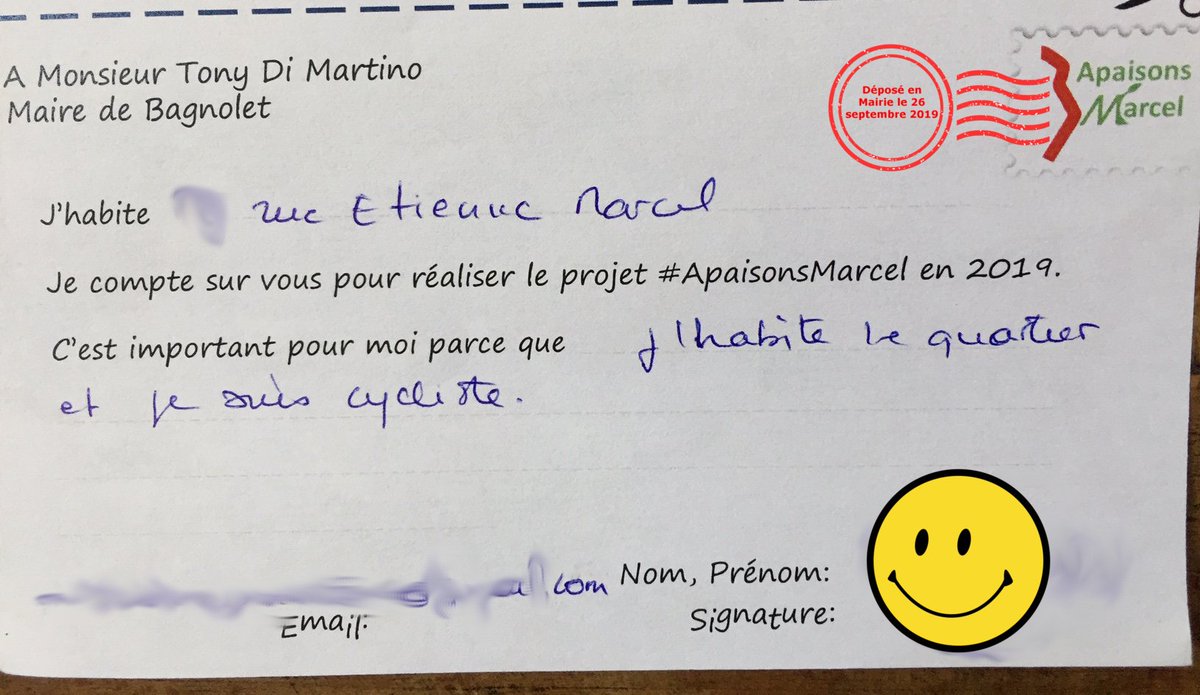 A Monsieur Tony Di Martino
Maire de Bagnolet
Déposé en
Mairie le 26
septembre 2019
Apaisons
Marcel
J'habite rue Etienne Marcel
Je compte sur vous pour réaliser le projet #ApaisonsMarcel en 2019.
C'est important pour moi parce que j'habite le quartier
et je suis cycliste.
.com
Nom, Prénom:
Email:
Signature: